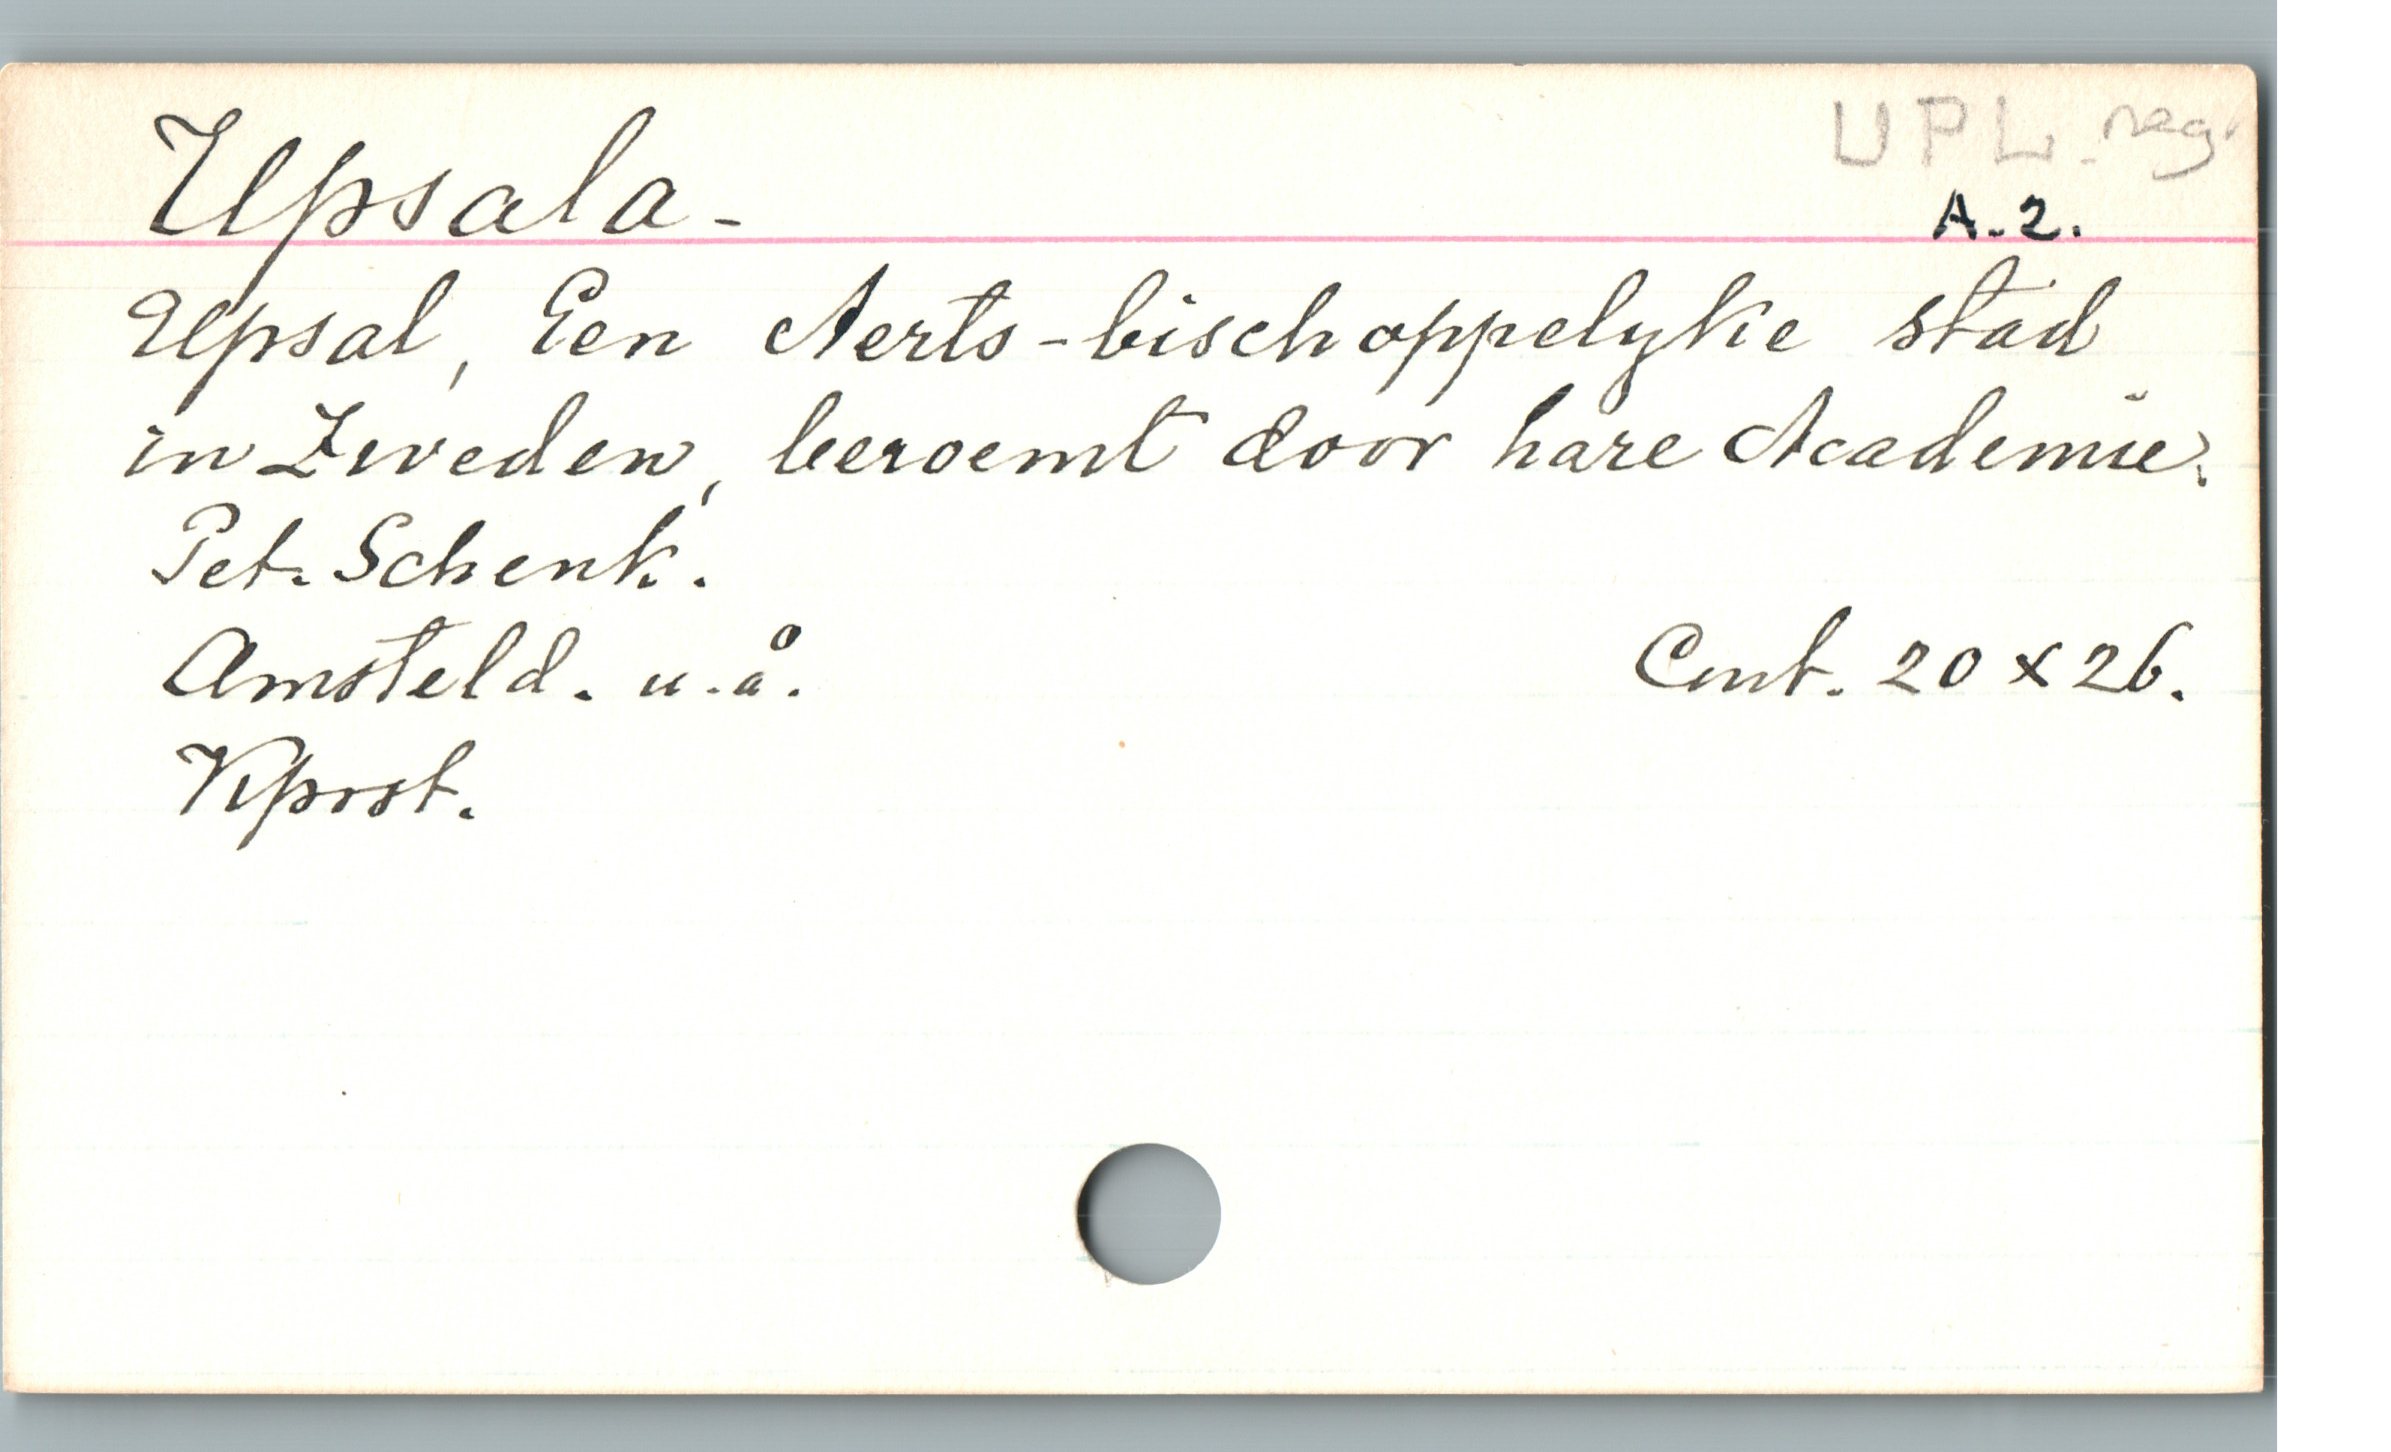 UPL. neg.
Upsala.
A.2.
Upsal, Een Aerts-bischoppelyke stad
in Zweden, beroemt door hare Academie.
Pet. Schenk.
Amsteld. u.å. Cent. 20 x 26.
Kprst.